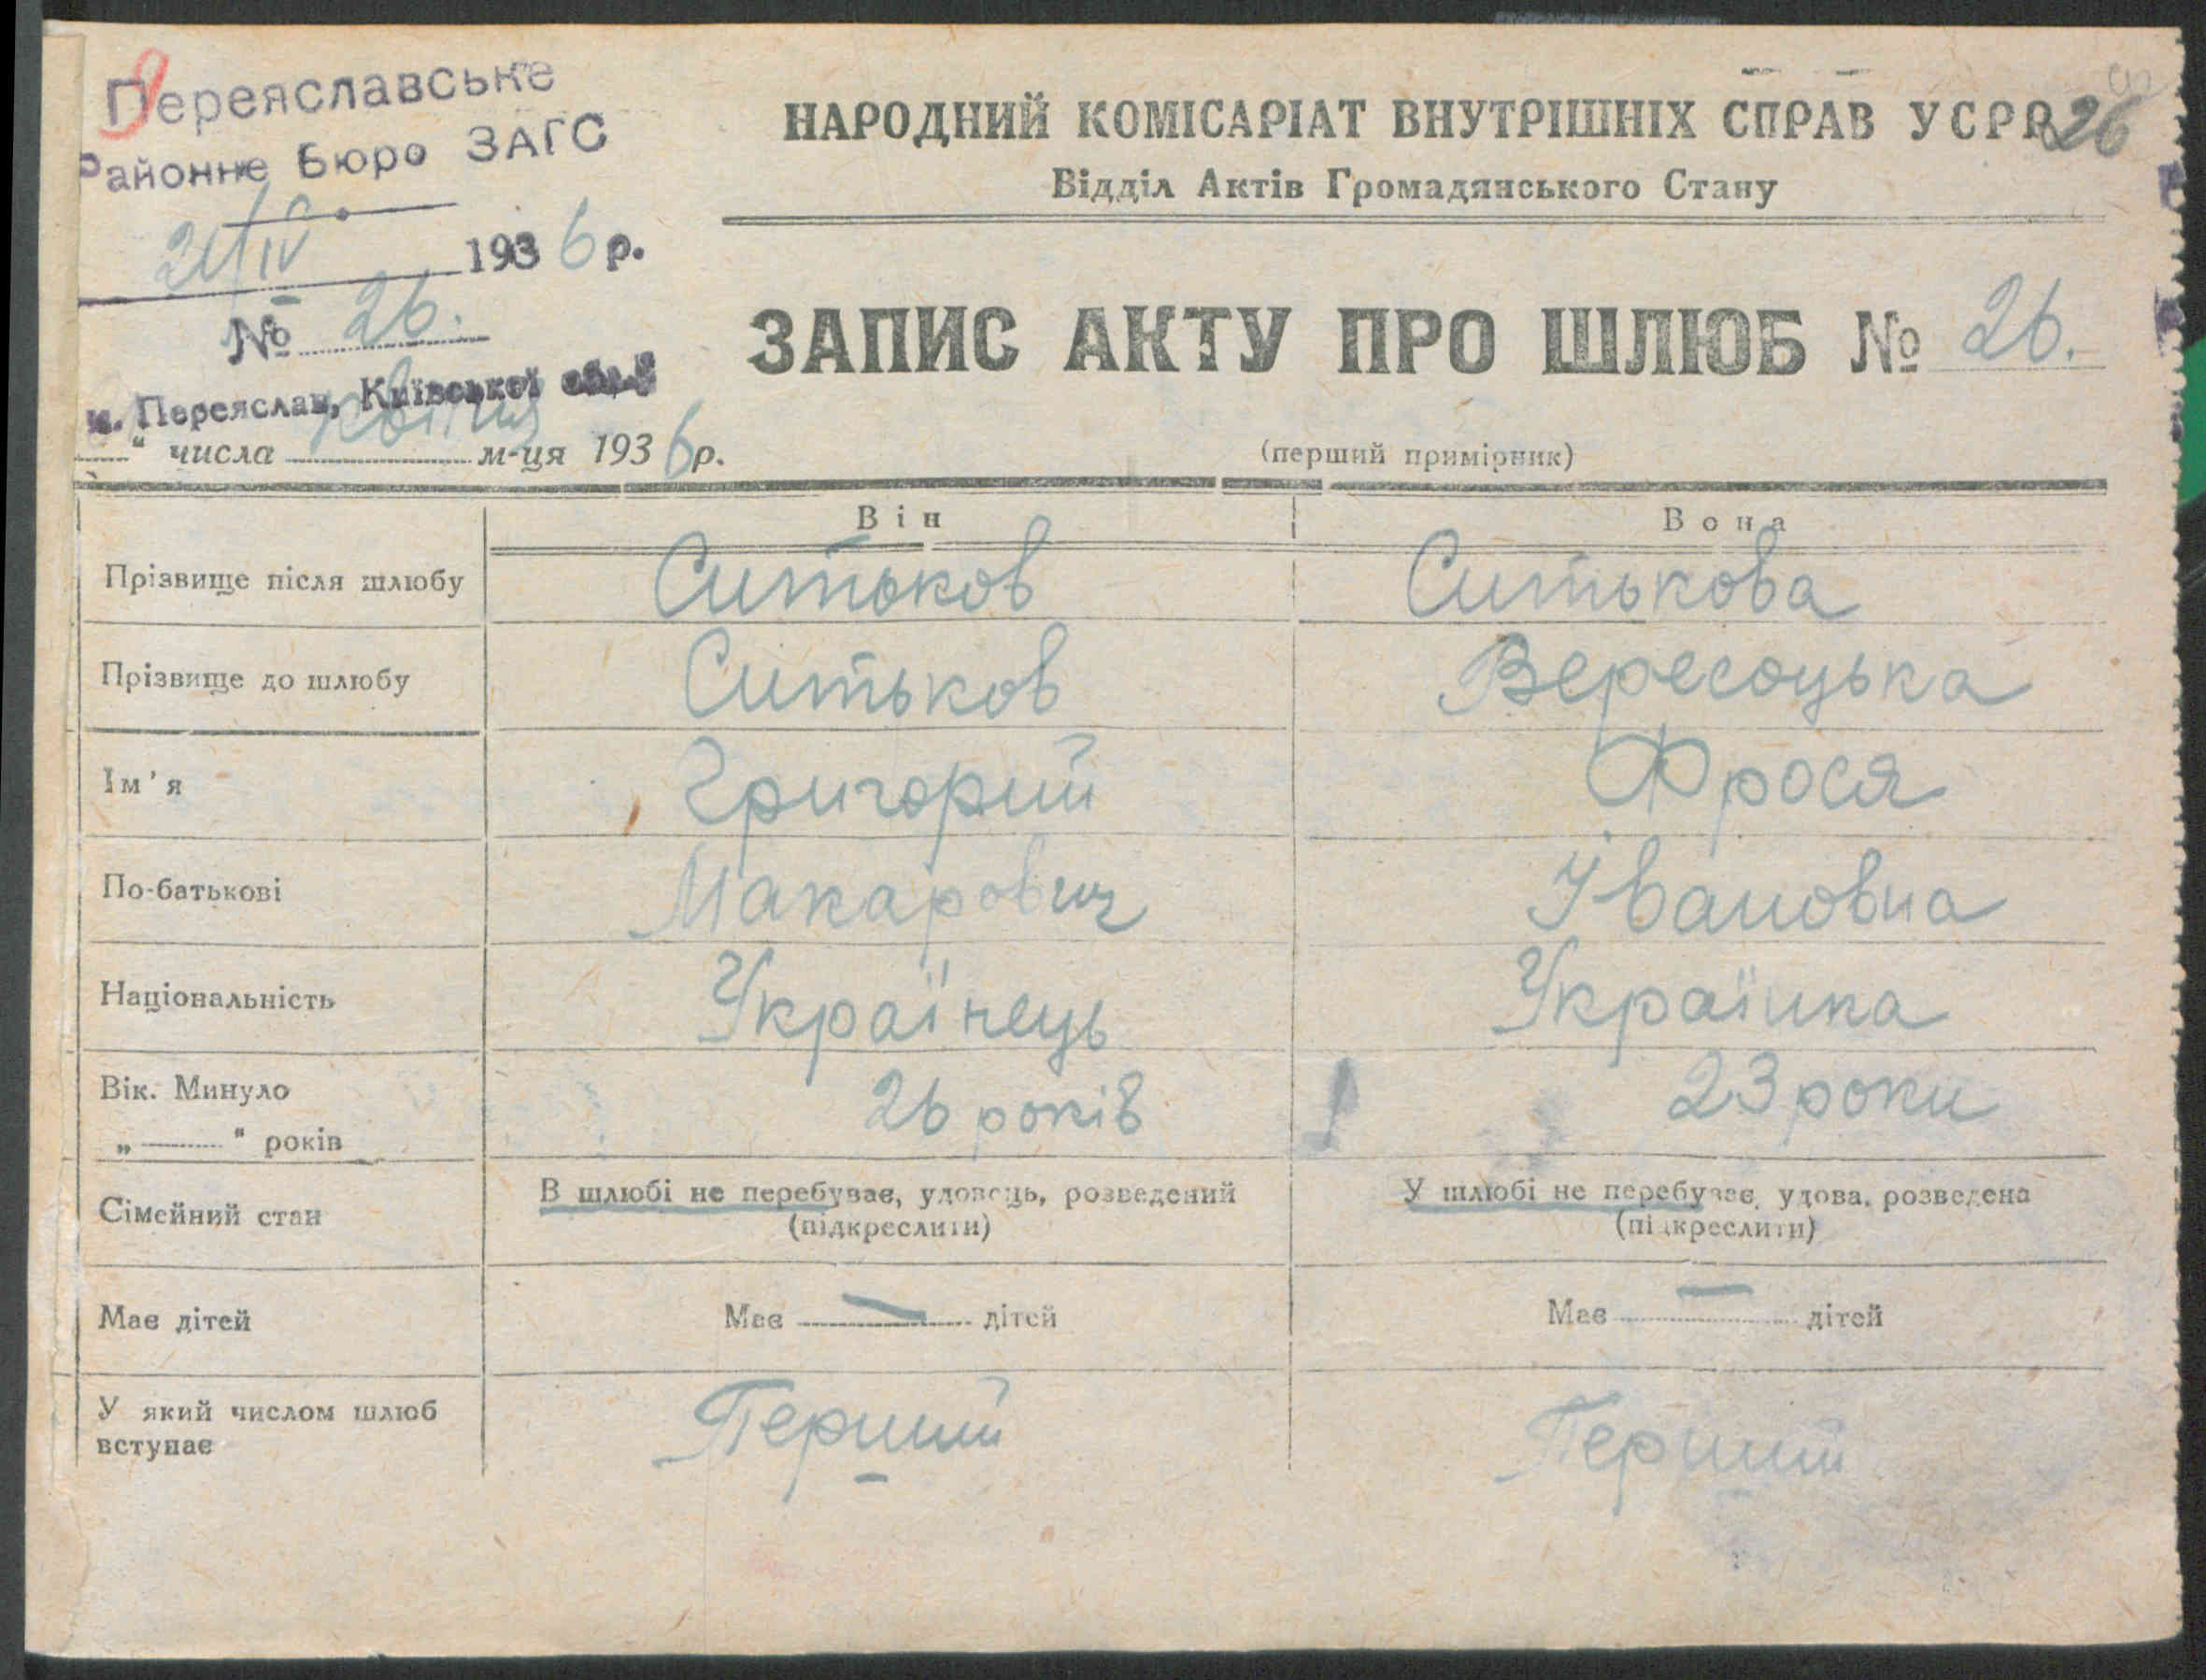 Переяславське
Районне Бюро ЗАГС
21/IV 1936 р.
№ 26.
м. Переяслав, Київської обл.
" числа квітня м-ця 1936 р.
НАРОДНИЙ КОМІСАРІАТ ВНУТРІШНІХ СПРАВ УСРР 26
Відділ Актів Громадянського Стану
ЗАПИС АКТУ ПРО ШЛЮБ № 26.
(перший примірник)
Він Вона
Прізвище після шлюбу Ситьков Ситькова
Прізвище до шлюбу Ситьков Вересоцька
Ім'я Григорий Фрося
По-батькові Макарович Івановна
Національність Українець Українка
Вік. Минуло 26 років 23 роки
„ " років
Сімейний стан В шлюбі не перебуває, удовець, розведений У шлюбі не перебуває, удова, розведена
(підкреслити) (підкреслити)
Має дітей Має — дітей Має — дітей
У який числом шлюб Перший Перший
вступає